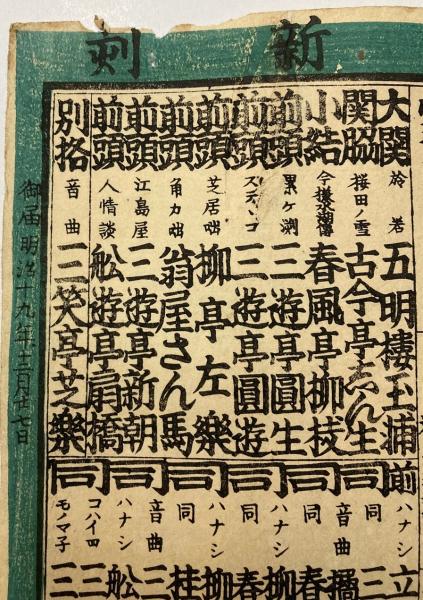 新刻
大関 於若 五明樓玉輔
関脇 桜田ノ雪 古今亭志ん生
小結 今様水滸傳 春風亭柳枝
前頭 累ケ渕 三遊亭圓生
前頭 ステテコ 三遊亭圓遊
前頭 芝居咄 柳亭左樂
前頭 角力咄 翁屋さん馬
前頭 江島屋 三遊亭新朝
前頭 人情談 舩遊亭扇橋
別格 音曲 三笑亭芝樂
前同同同同同同同
ハナシ 立
同 三
音曲 橘
同 春
ハナシ 柳
同 春
ハナシ 柳
同 桂
音曲 三
ハナシ 舩
コハイロ 三
モノマ子 三
御届明治十九年十二月廿七日